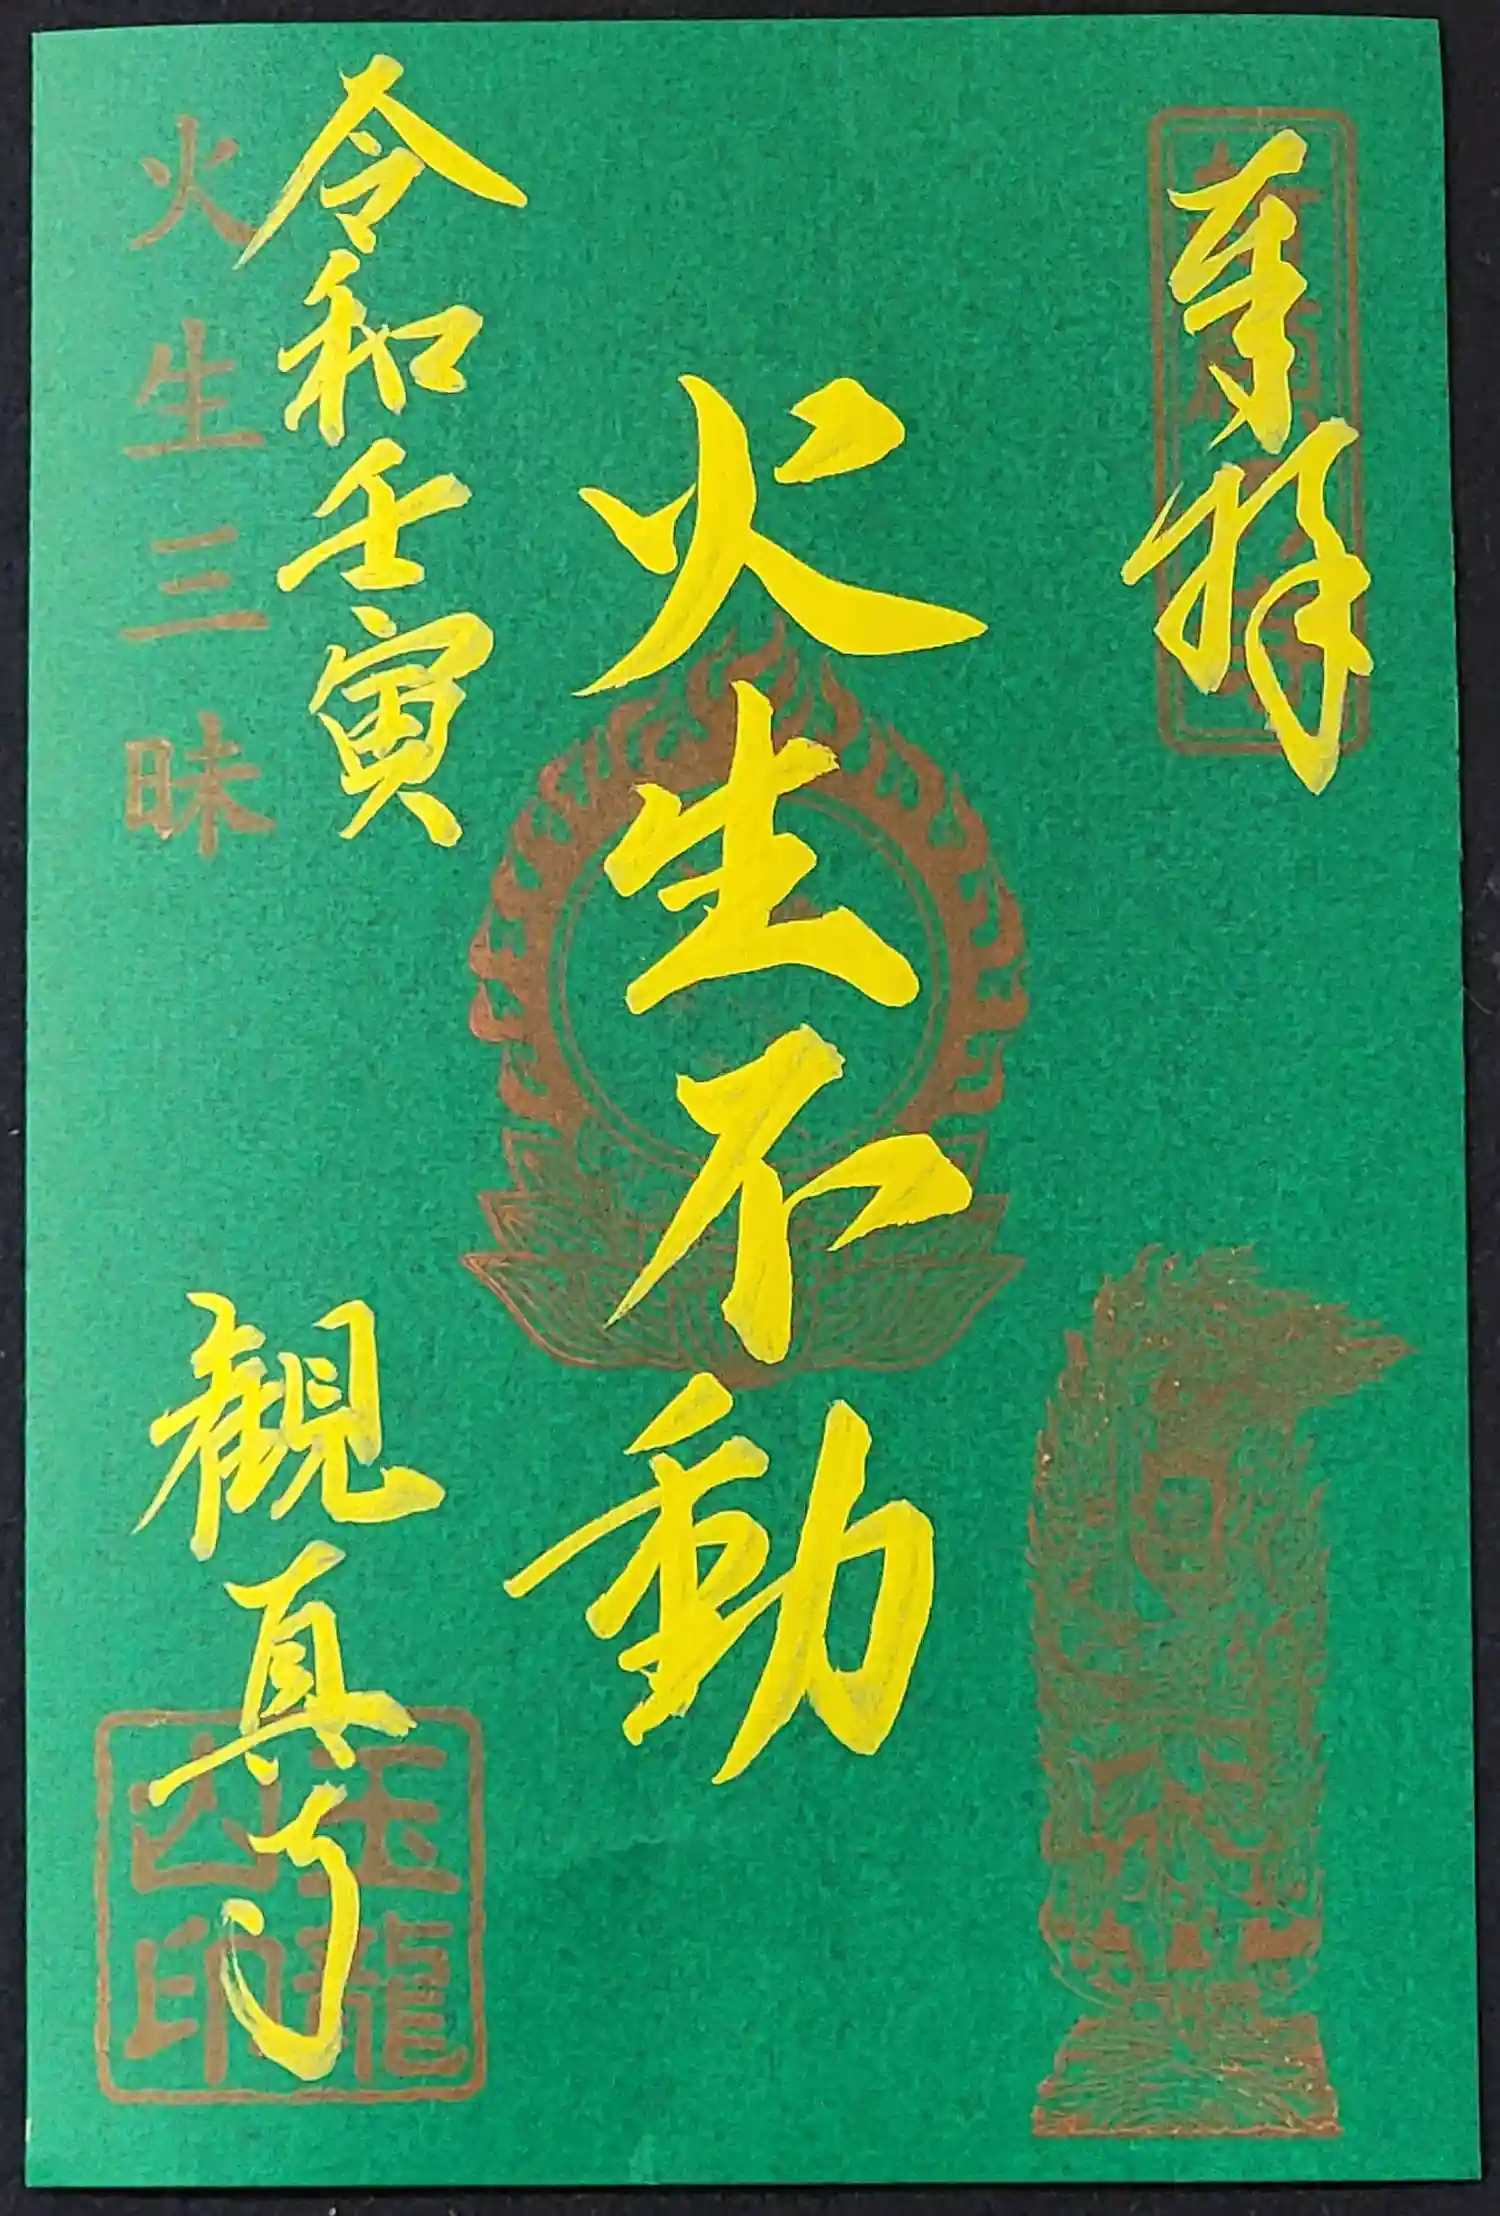 奉拝
火生不動
令和壬寅
火生三昧
観真寺
玉龍山印